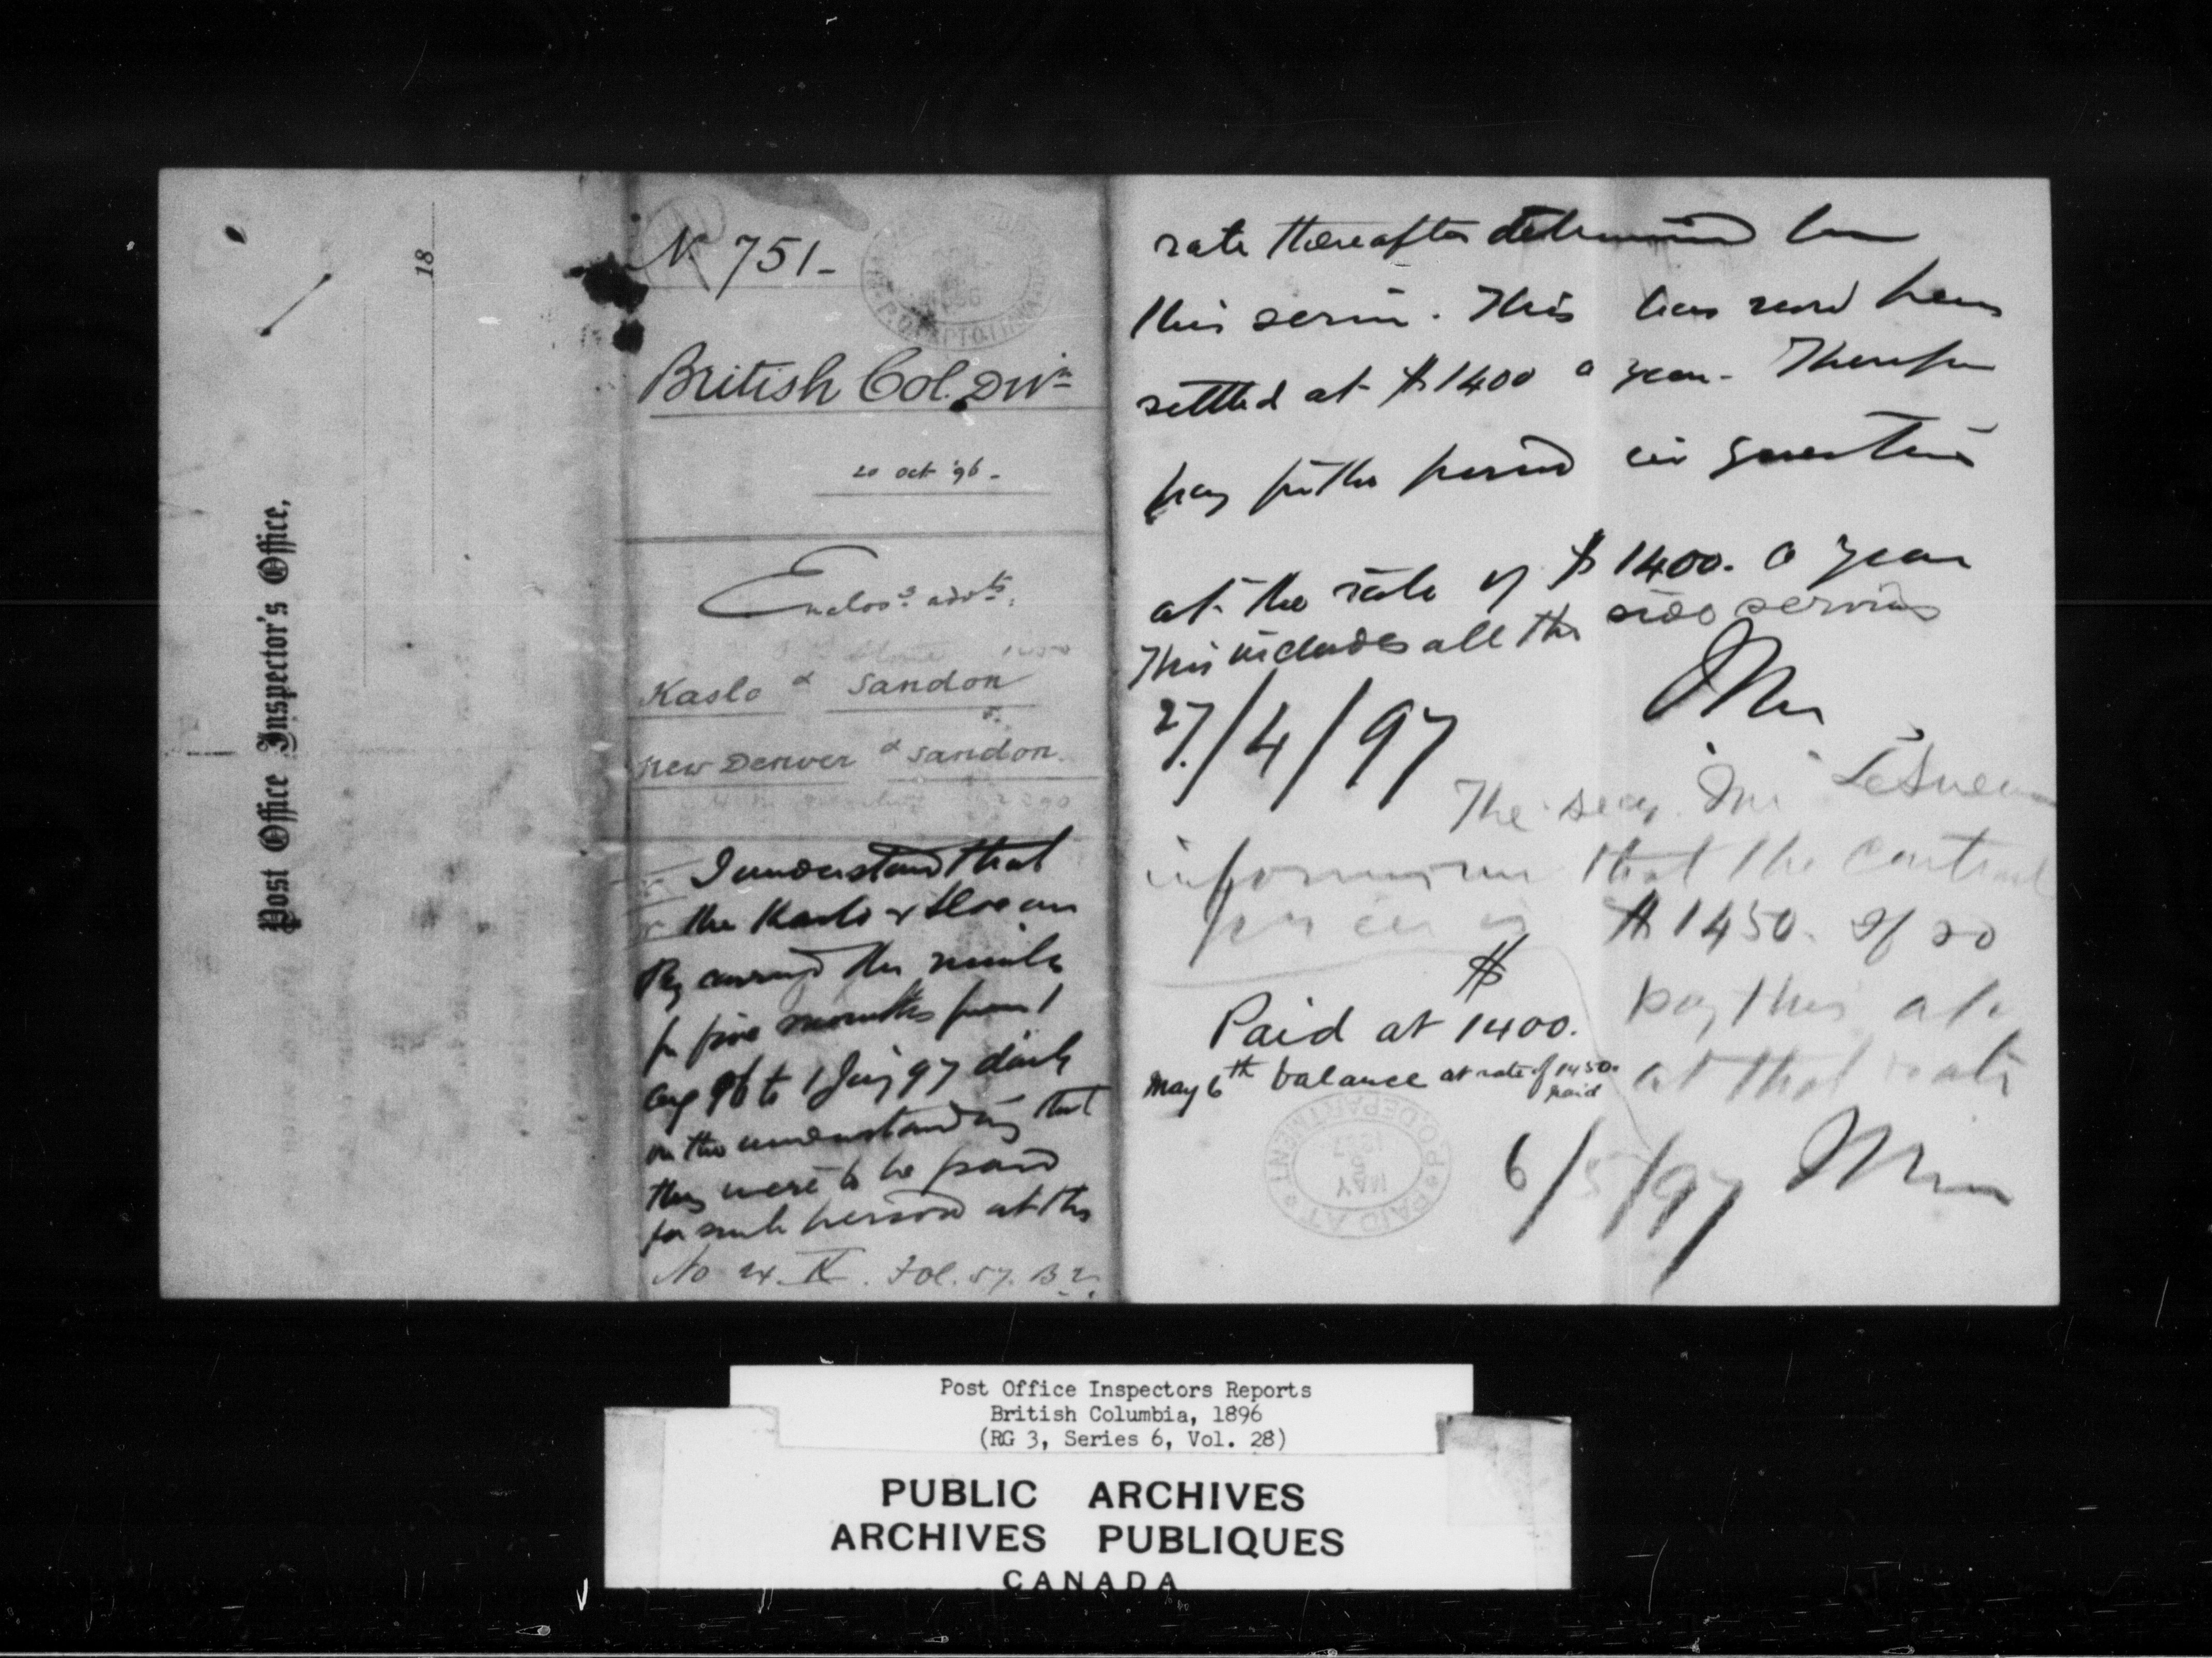 Post Office Inspector's Office,
18
No. 751-
British Col. Divn
20 Oct '96-
Enclos.g advts.
Kaslo & Sandon
New Denver & Sandon.
I understand that
the Kaslo & Slocan
Ry carried the mails
for five months from 1
Aug 96 to 1 Jany 97 daily
on the understanding that
they were to be paid
for such period at the
No Fol. 57. B
rate thereafter determined
this service. This has now been
settled at $1400 a year. Therefore
pay for the period in question
at the rate of $1400. a year
This includes all the side services
27/4/97
The secy. Mr LeSueur
informs me that the contract
price is $1450. If so
pay this a/c
at that rate
Paid at $1400.
May 6th balance at rate of 1450.
paid
P.O. DEPARTMENT
PAID AT
MAY
6/5/97
Post Office Inspectors Reports
British Columbia, 1896
(RG 3, Series 6, Vol. 28)
PUBLIC ARCHIVES
ARCHIVES PUBLIQUES
CANADA